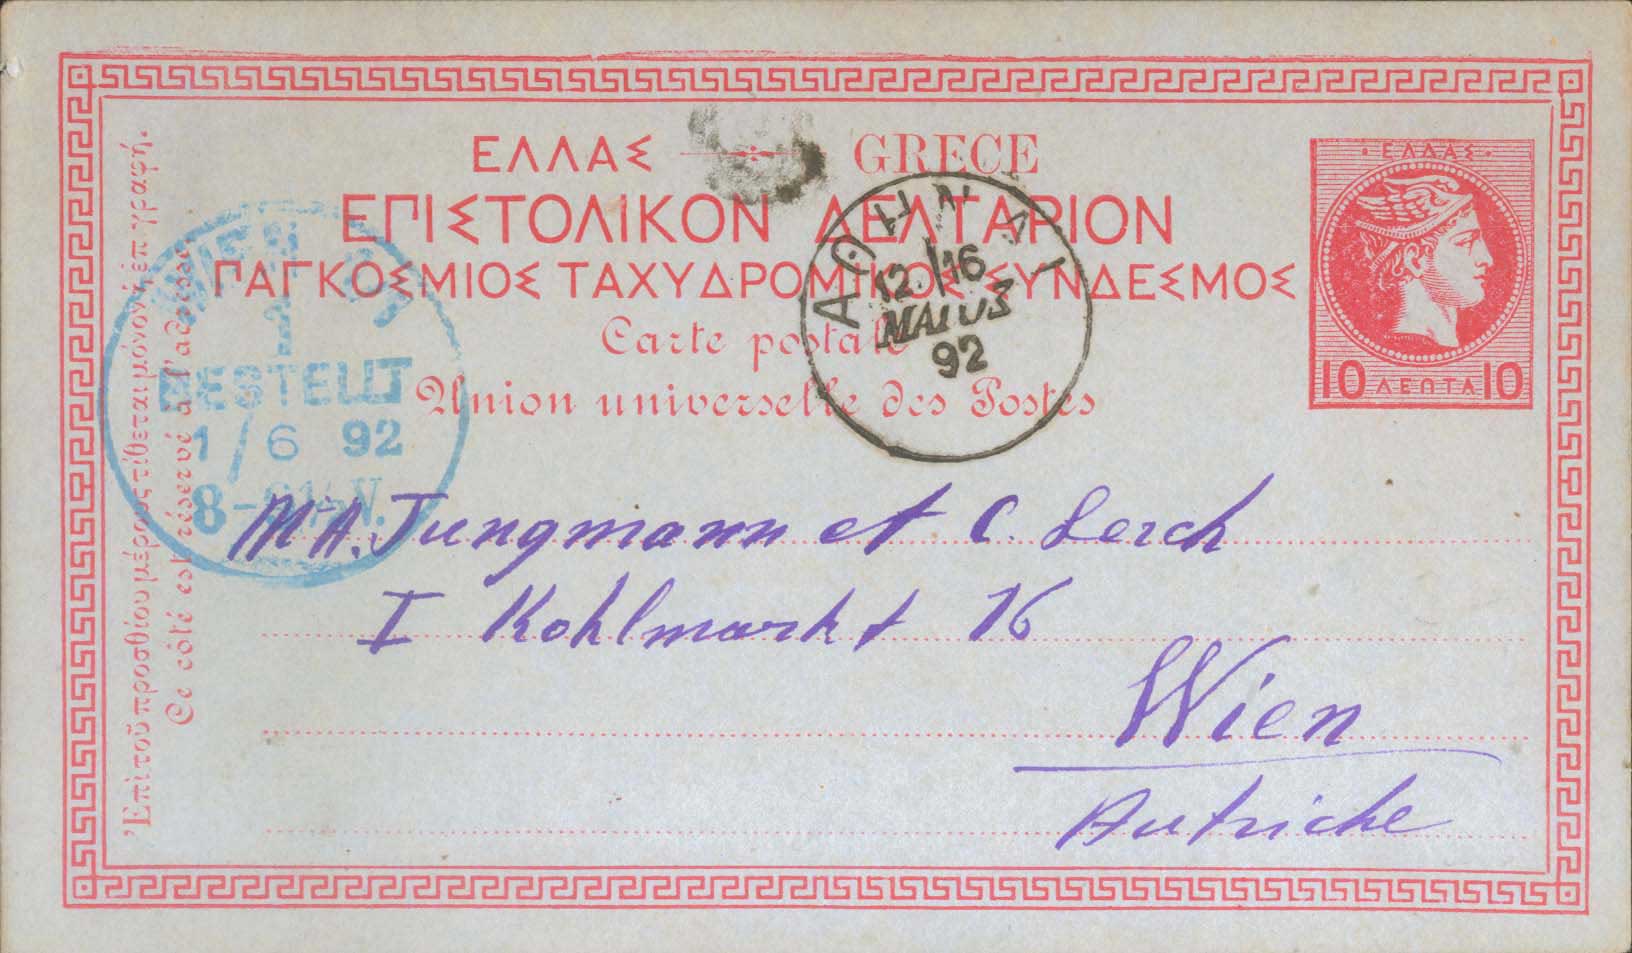 ΕΛΛΑΣ GRECE
ΕΠΙΣΤΟΛΙΚΟΝ ΔΕΛΤΑΡΙΟΝ
ΠΑΓΚΟΣΜΙΟΣ ΤΑΧΥΔΡΟΜΙΚΟΣ ΣΥΝΔΕΣΜΟΣ
Carte postale
Union universelle des Postes
·ΕΛΛΑΣ·
10 ΛΕΠΤΑ 10
ΑΘΗΝΑΙ
12. 16
ΜΑΙΟΣ
92
WIEN
1
BESTELLT
1/6 92
8-9½V.
Ἐπὶ τοῦ προσθίου μέρους τίθεται μονον ἡ ἐπιγραφή.
Ce côté est réservé à l'adresse.
M A. Jungmann et C. Lerch
I Kohlmarkt 16
Wien
Autriche